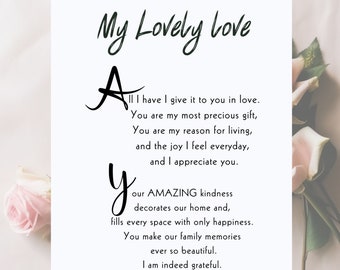 My Lovely Love
All I have I give it to you in love.
You are my most precious gift,
You are my reason for living,
and the joy I feel everyday,
and I appreciate you.
Your AMAZING kindness
decorates our home and,
fills every space with only happiness.
You make our family memories
ever so beautiful.
I am indeed grateful.